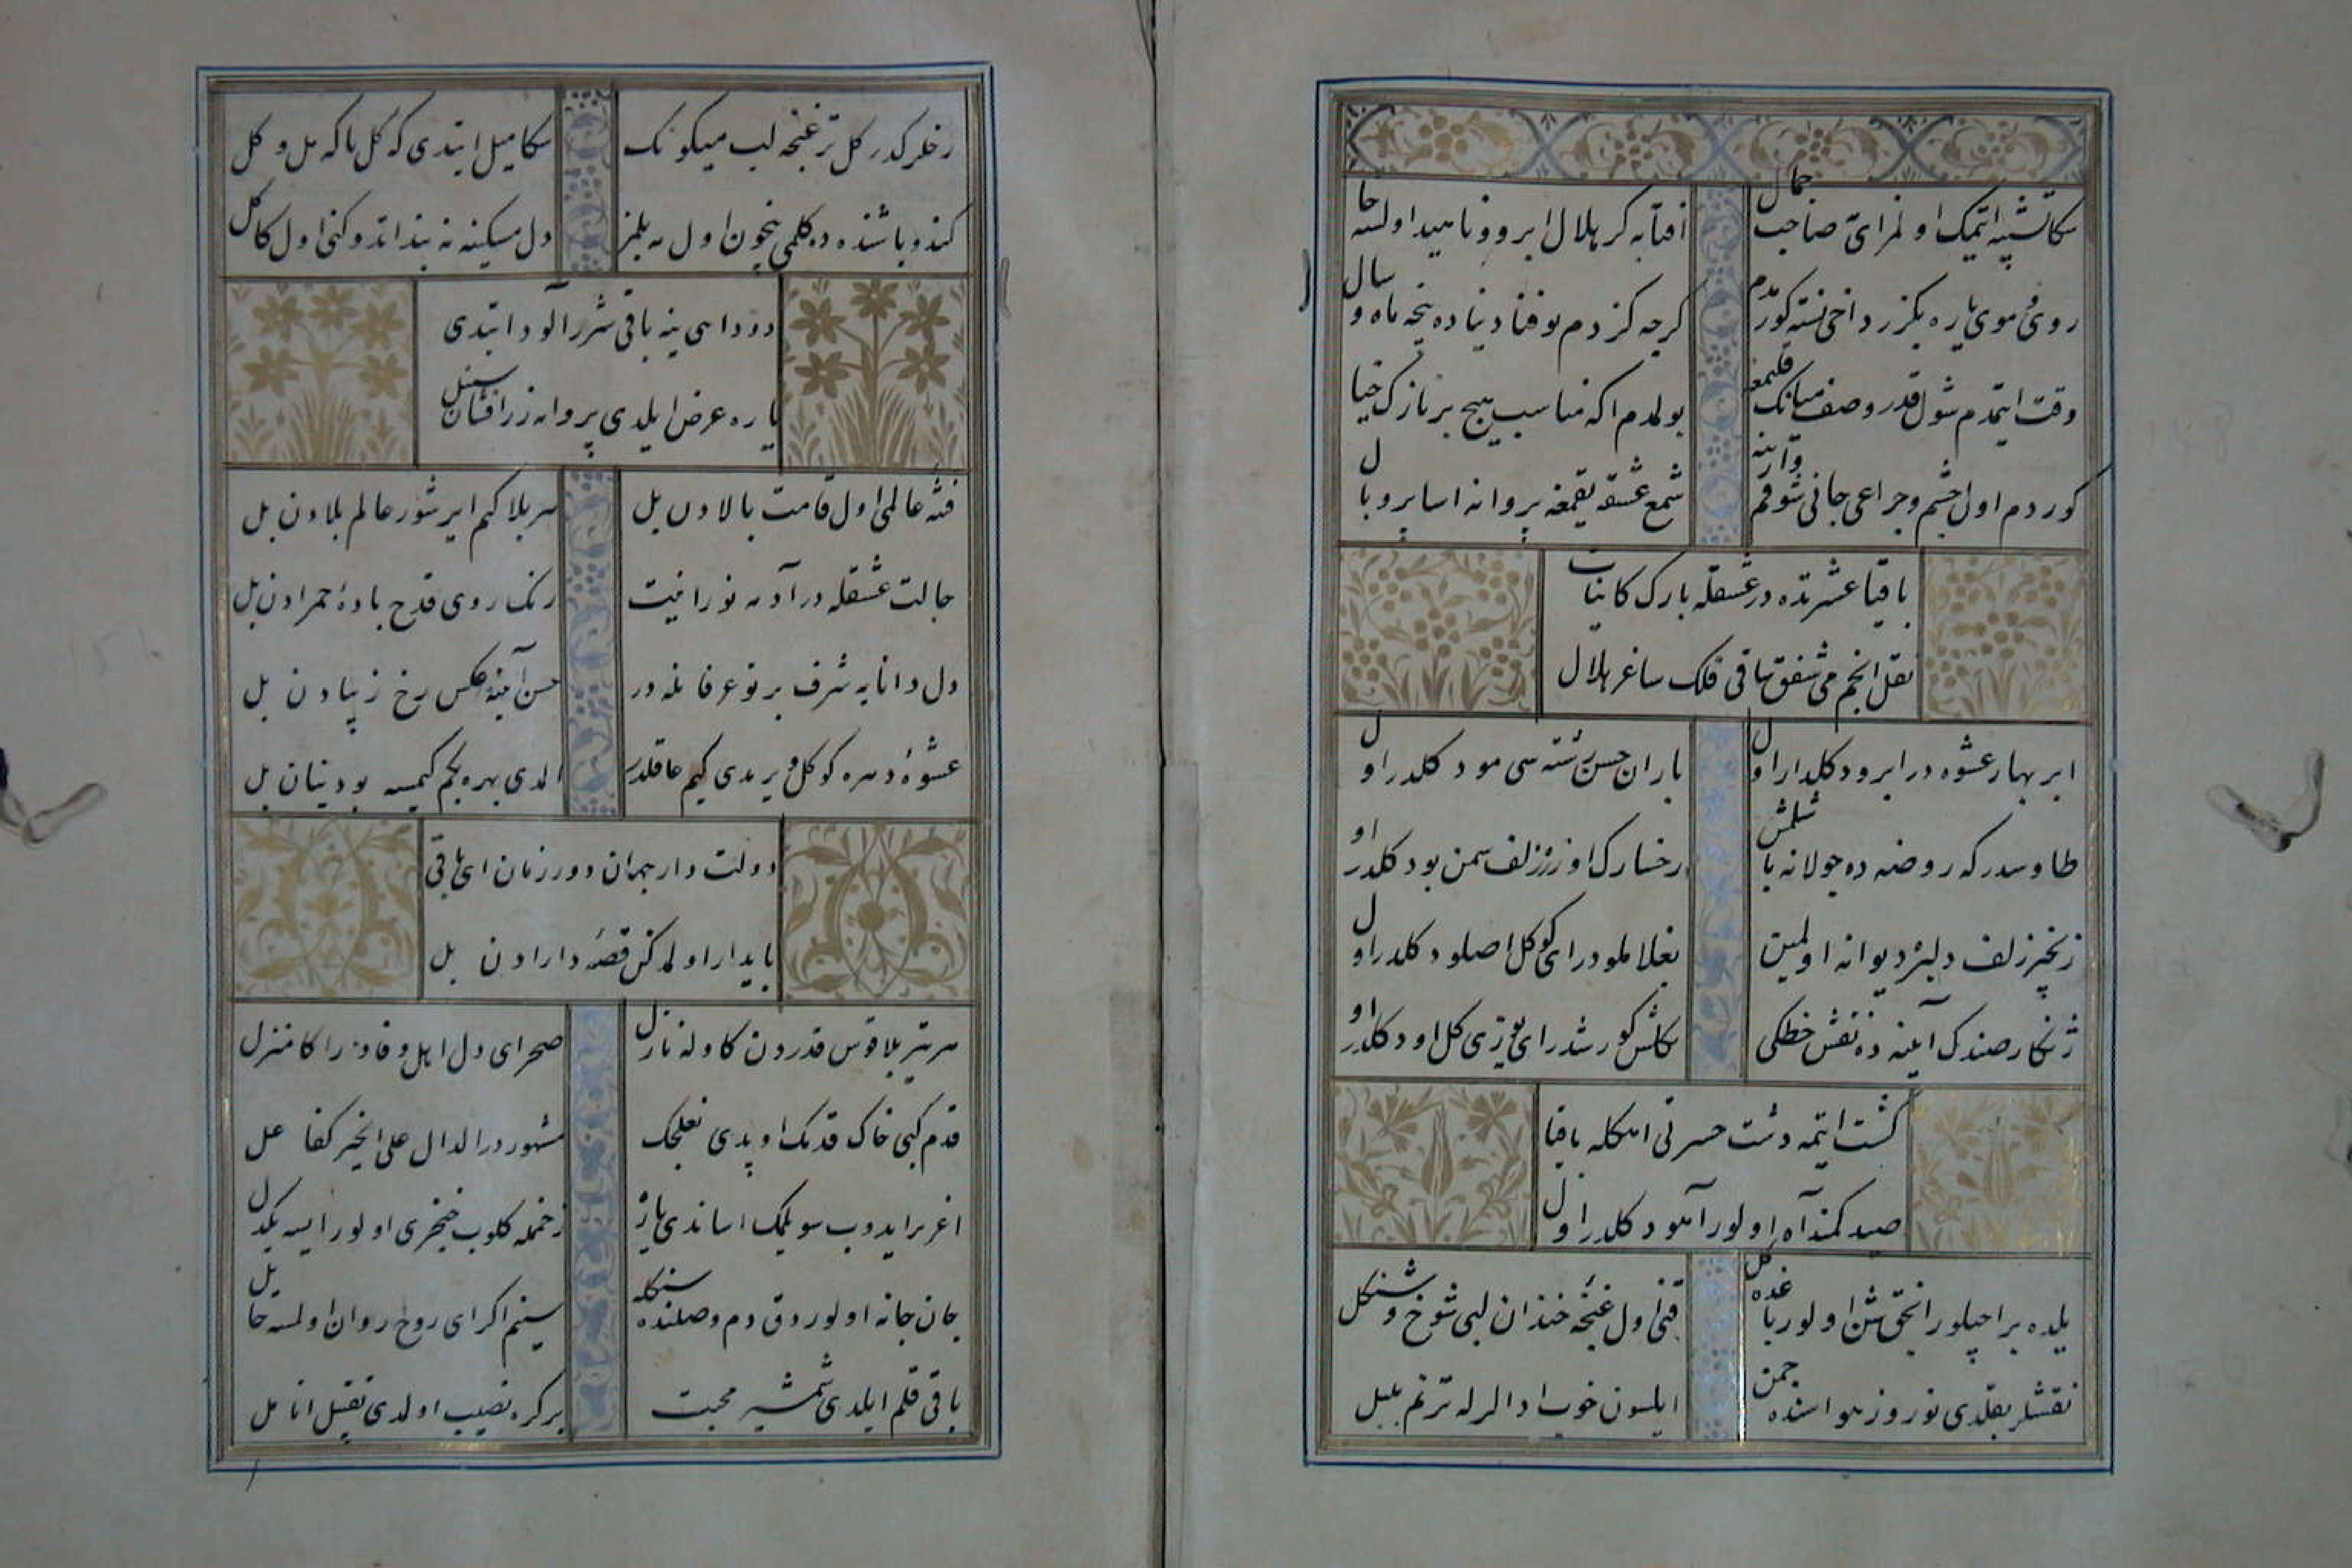 سكا تشبيه اتمك اولمز اى صاحب جمال
افتابه كر هلال ابرو و ناهيد اولسه خال
روى موى ياره بكزر داخى نسنه كورمدم
كرچه كزدم بو فنا دنياده نيجه ماه و سال
دقت ايتدم شول قدر وصف ميانك قلمغه
بولمدم اكا مناسب هيچ بر نازك خيال
كوردم اول چشم و چراغى جانى شوقم وارينه
شمع عشقه يقمغه پروانه اسا پر و بال
باقيا عشرتده در عشقله بارك كاينات
نقل انجم مى شفق ساقى فلك ساغر هلال
ابر بهار عشوه در ابرو دكلدر اول
باران حسن رشته سى مو دكلدر اول
طاوسدر كه روضه ده جولانه باشلمش
رخسارك اوزره زلف سمن بو دكلدر او
زنجير زلف دلبره ديوانه اولمين
بغلاملودر اى كوكل اصلو دكلدر اول
ژنكار صندك آينه ده نقش خطكى
كلش كورشدر اى يوزى كل او دكلدر او
كشت ايتمه دشت حسرتى اهكله باقيا
صيد كمند آه اولور آهو دكلدر اول
يلده بر اچيلور انجق شن اولور باغده كل
قنى اول غنچه خندان لبى شوخ و شنكل
نقشلر بغلدى نوروز هواسنده چمن
ايلسون خوب ادالرله ترنم بلبل
رخلر كدر كل تر غنچه لب ميكونك
سكا ميل ايتدى كه كل باكه مل و كل
كندو باشنده ده كلمى نيچون اول يه يلمز
دل مسكينه نه بند اتدوكنى اول كاكل
دود اهى ينه باقى شرر آلود ايتدى
ياره عرض ايلدى پروانه زرافشان سنبل
فتنه عالمى اول قامت بالادن بل
هر بلا كم ايرشور عالم بلادن بل
حالت عشقله در آدمه نورانيت
رنك روى قدح باده حمرادن بل
دل دانايه شرف پرتو عرفانله در
حسن آينه عكس رخ زيبادن بل
عشوه دهره كوكل ويريدى كيم عاقلدر
الدى بهره بكم كيمسه بو دنيادن بل
دولت دار جهان دور زمان اى باقى
پايدار اولمدغن قصه دارادن بل
هر تير بلا قوس قدردن كا وله نازل
صحراى دل اهل وفادر اكا منزل
قدم كبى خاك قدمك اوپدى نعلجك
مشهور در الدال على الخير كفاعل
اغر برايدوب سويلمك اساندى يارز
زخمله كلوب خنجرى اولور ايسه يكدل
جان جانه اولور دق دم وصلنده سنكله
سينم اكر اى روح روان اولمسه حايل
باقى قلم ايلدى شمشير محبت
بر كره نصيب اولدى تقبيل انامل